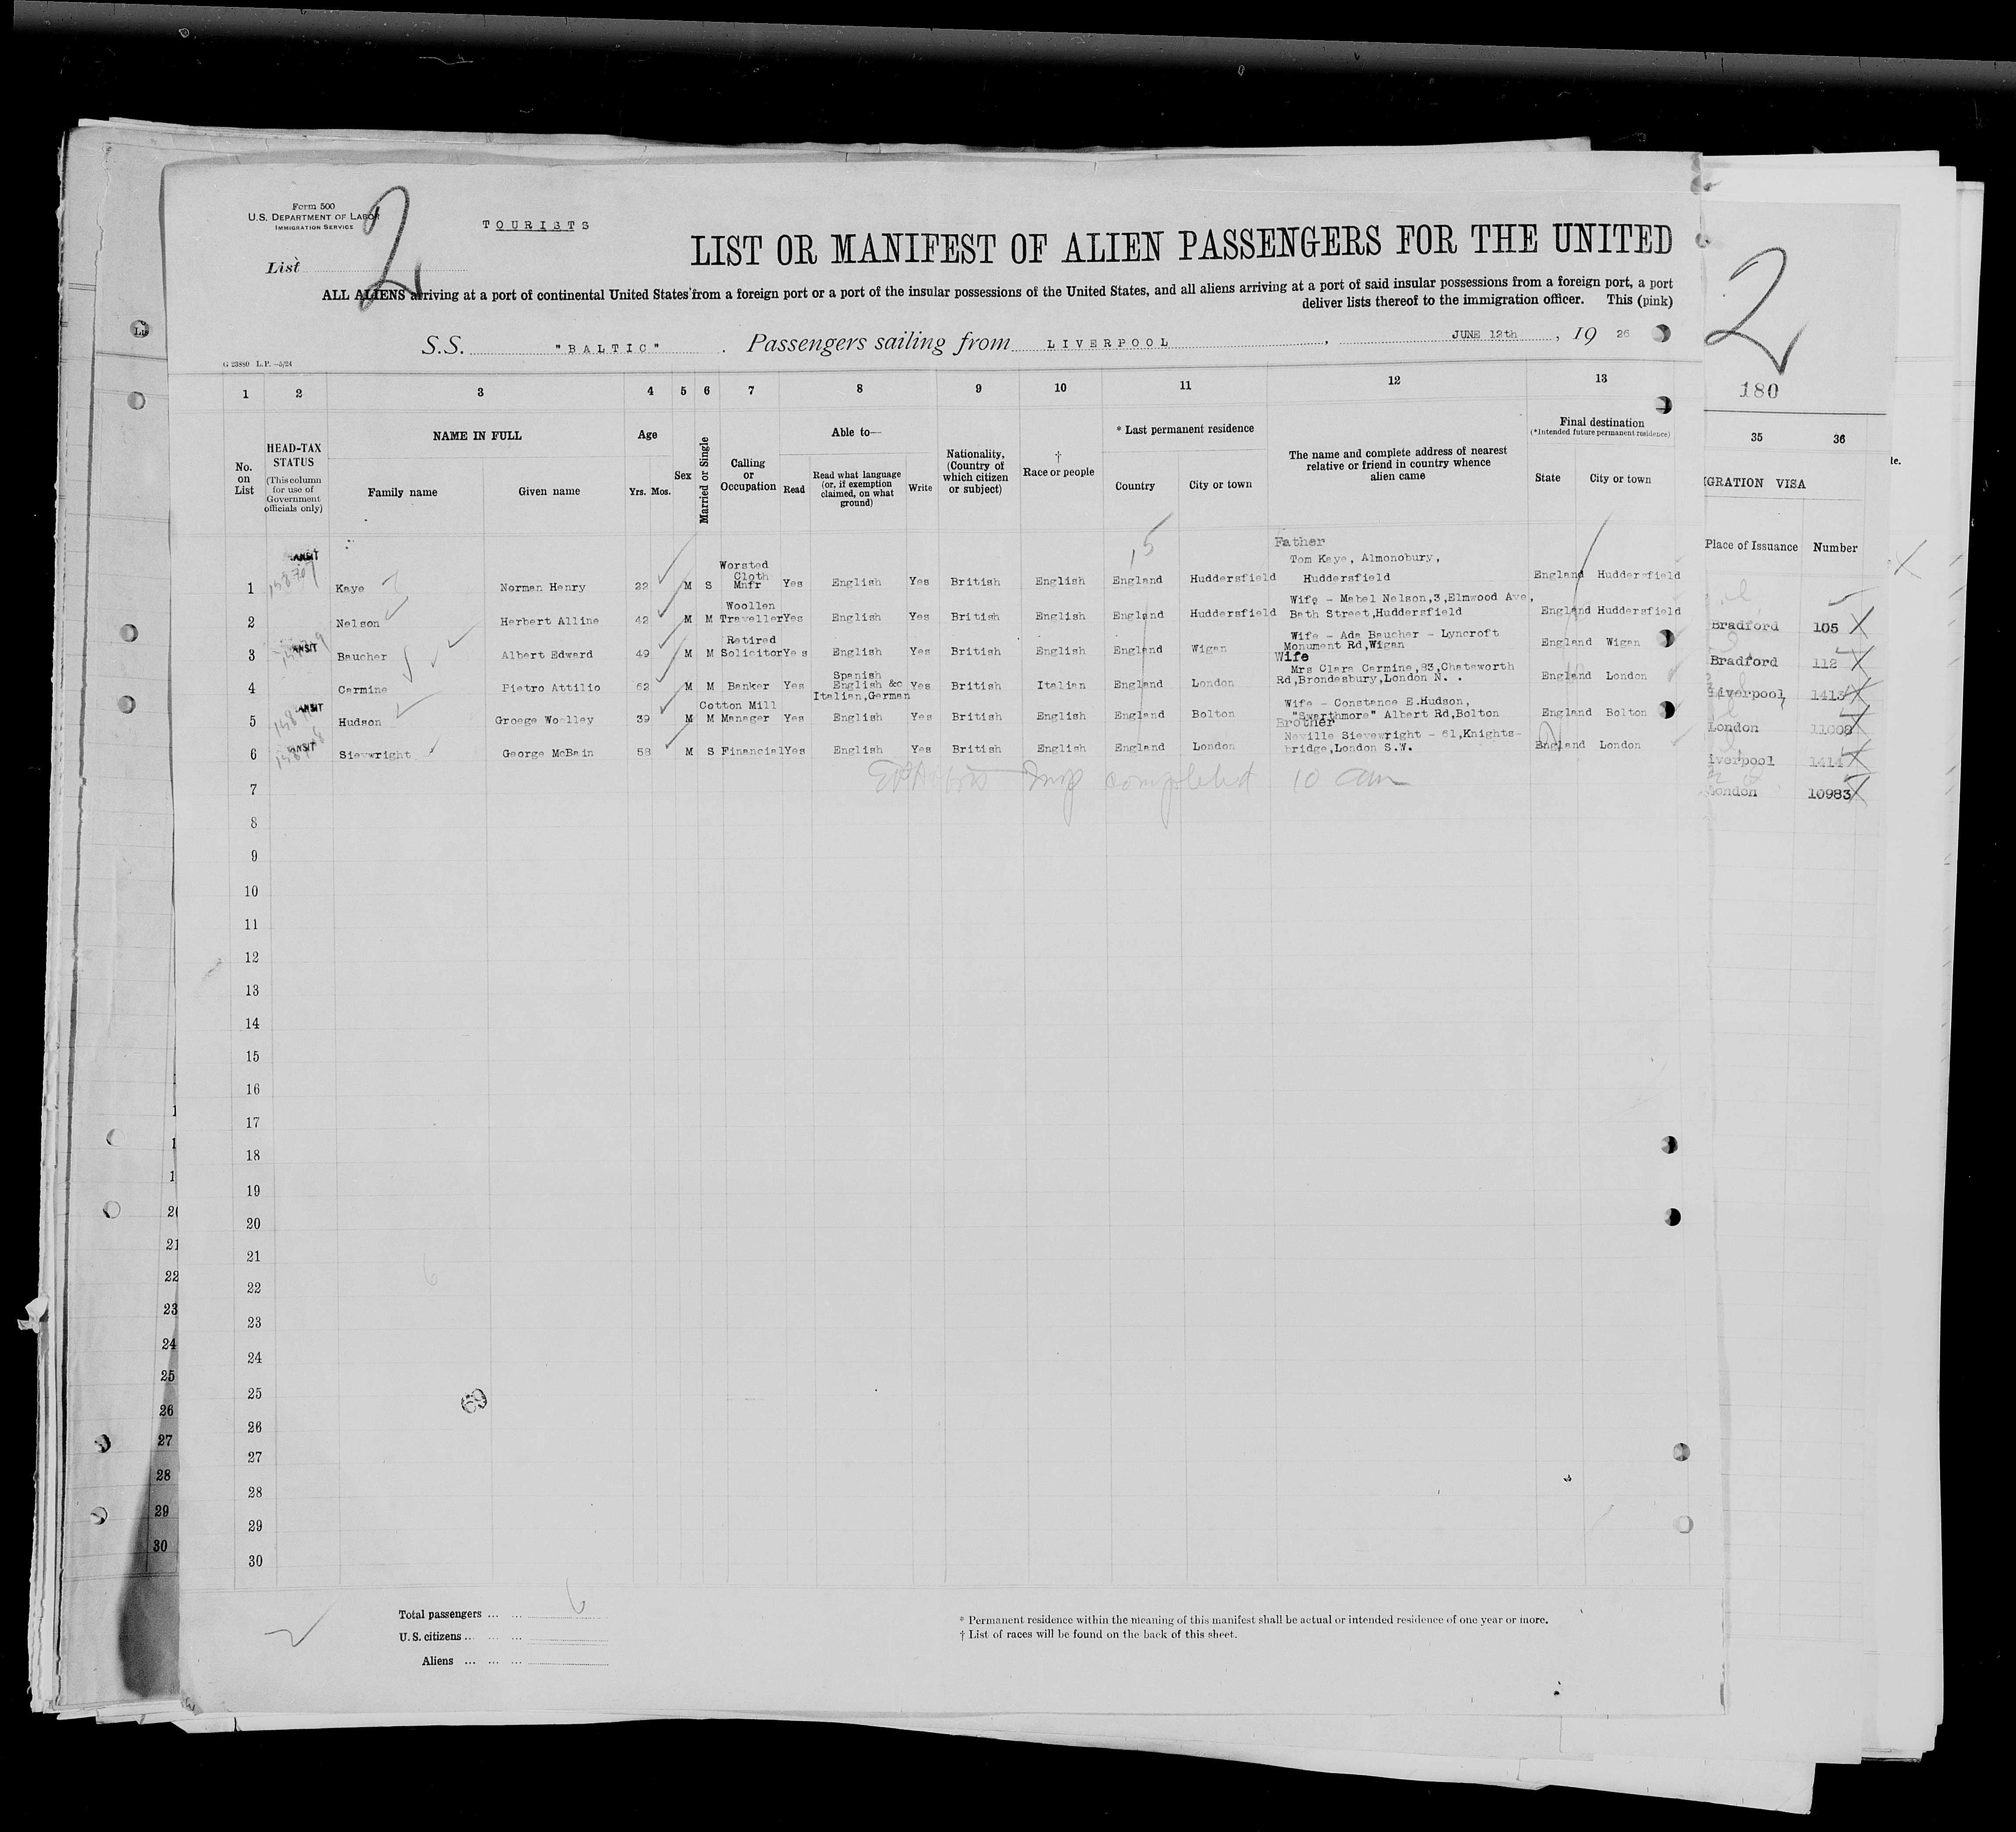 Form 500
U.S. DEPARTMENT OF LABOR
IMMIGRATION SERVICE
TOURISTS
2
List
LIST OR MANIFEST OF ALIEN PASSENGERS FOR THE UNITED
ALL ALIENS arriving at a port of continental United States from a foreign port or a port of the insular possessions of the United States, and all aliens arriving at a port of said insular possessions from a foreign port, a port
deliver lists thereof to the immigration officer. This (pink)
S.S. "BALTIC" . Passengers sailing from LIVERPOOL , JUNE 12th , 19 26
G 23880 L.P. —5/24
2
180
1 2 3 4 5 6 7 8 9 10 11 12 13 35 36
No. on List
HEAD-TAX STATUS
(This column for use of Government officials only)
NAME IN FULL
Family name Given name
Age
Yrs. Mos.
Sex
Married or Single
Calling or Occupation
Able to—
Read
Read what language (or, if exemption claimed, on what ground)
Write
Nationality, (Country of which citizen or subject)
† Race or people
* Last permanent residence
Country City or town
The name and complete address of nearest relative or friend in country whence alien came
Final destination
(*Intended future permanent residence)
State City or town
IGRATION VISA
Place of Issuance Number
15
1 Kaye Norman Henry 22 M S Worsted Cloth Mnfr Yes English Yes British English England Huddersfield Father Tom Kaye, Almonobury, Huddersfield England Huddersfield
2 Nelson Herbert Alline 42 M M Woollen Traveller Yes English Yes British English England Huddersfield Wife - Mabel Nelson,3,Elmwood Ave, Bath Street,Huddersfield England Huddersfield
3 Baucher Albert Edward 49 M M Retired Solicitor Yes English Yes British English England Wigan Wife - Ada Baucher - Lyncroft Monument Rd,Wigan England Wigan
4 Carmine Pietro Attilio 62 M M Banker Yes Spanish English &c Italian,German Yes British Italian England London Wife Mrs Clara Carmine,83,Chatsworth Rd,Brondesbury,London N. . England London
5 Hudson Groege Woolley 39 M M Cotton Mill Manager Yes English Yes British English England Bolton Wife - Constance E.Hudson, "Swarthmore" Albert Rd,Bolton England Bolton
6 Sievwright George McBain 58 M S Financial Yes English Yes British English England London Brother Neville Sievewright - 61,Knights-bridge,London S.W. England London
Bradford 105
Bradford 112
Liverpool 1413
London 11008
iverpool 1414
London 10983
Insp completed 10 am
7
8
9
10
11
12
13
14
15
16
17
18
19
20
21
22
23
24
25
26
27
28
29
30
21
22
23
24
25
26
27
28
29
30
Total passengers ... ... 6
U.S. citizens ... ... ...
Aliens ... ... ...
* Permanent residence within the meaning of this manifest shall be actual or intended residence of one year or more.
† List of races will be found on the back of this sheet.